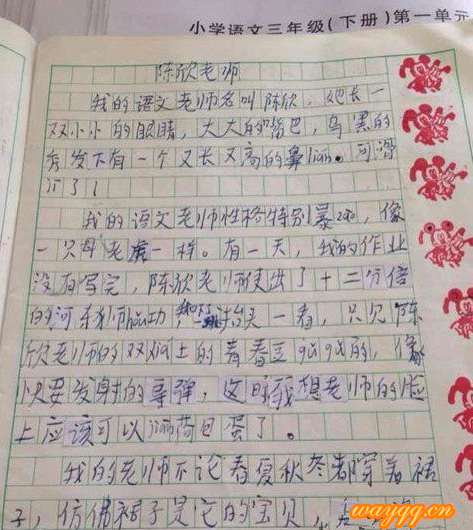 小学语文三年级(下册)第一单元
陈欣老师
我的语文老师名叫陈欣，她长一
双小小的眼睛，大大的嘴巴，乌黑的
秀发下有一个又长又高的鼻liang。可滑
ji了！
我的语文老师性格特别暴zao，像
一只母老虎一样。有一天，我的作业
没有写完，陈欣老师使出了十二分倍
的河东狮hou功，我抬头一看，只见陈
欣老师的双颊上的青春豆
以要发射的导弹，这时我想老师的脸
上应该可以煎荷包蛋了。
我的老师不论春夏秋冬都穿着裙
子，仿佛裙子是它的宝贝，
waygq.cn